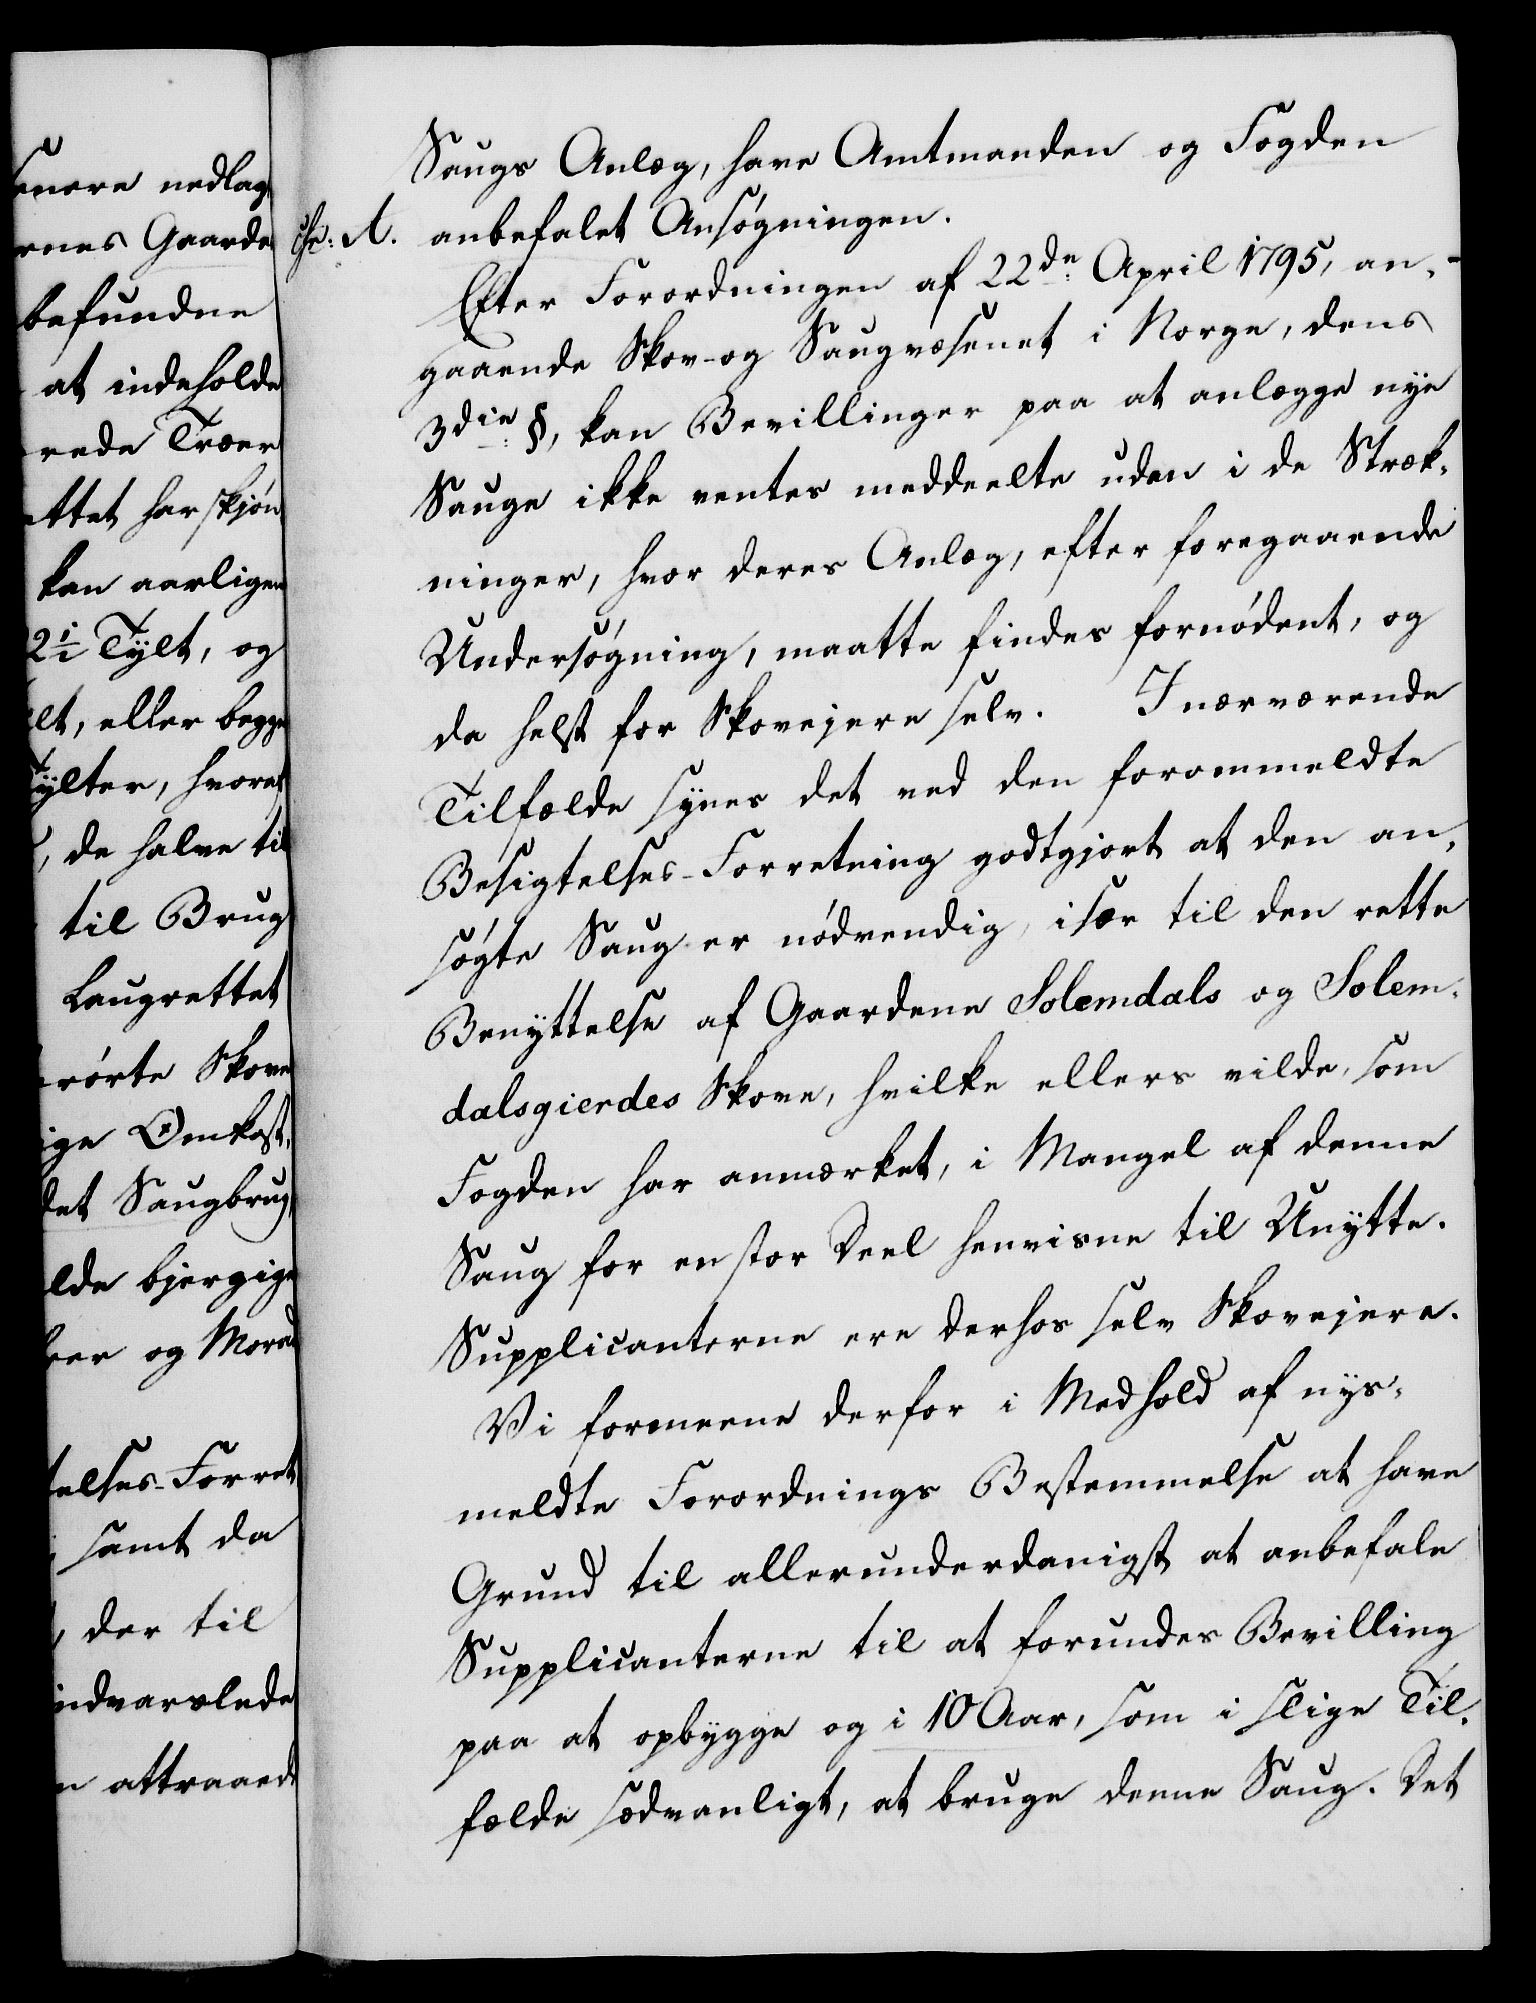 enere nedlag
rnes Gaarde
befundne
at indeholde
rede Træer
ettet har skjøn
kan aarligen
2½ Tylt, og
lt, eller begge
Tylter, hvoraf
, de halve til
til Brug
Laugrettet
rørte Skove
ige Omkost,
det Saugbrug,
lde bjergige
eer og Morad
telses-Forret
samt da
, der til
indvarslede
n attraaed
Saugs Anlæg, have Amtmanden og Fogden
A. anbefalet Ansøgningen.
Efter Forordningen af 22de April 1795, an-
gaaende Skov- og Saugvæsenet i Norge, dens
3die §, kan Bevillinger paa at anlægge nye
Sauge ikke ventes meddeelte uden i de Stræk-
ninger, hvor deres Anlæg, efter foregaaende
Undersøgning, maatte findes fornødent, og
da helst for Skovejere selv. I nærværende
Tilfælde synes det ved den forommeldte
Besigtelses-Forretning godtgjort at den an-
søgte Saug er nødvendig, især til den rette
Benyttelse af Gaardene Solemdals og Solem-
dalsgierdes Skove, hvilke ellers vilde, som
Fogden har anmærket, i Mangel af denne
Saug for en stor Deel henvisne til Unytte.
Supplicanterne ere derhos selv Skovejere.
Vi formeene derfor i Medhold af nys-
meldte Forordnings Bestemmelse at have
Grund til allerunderdanigst at anbefale
Supplicanterne til at forundes Bevilling
paa at opbygge og i 10 Aar, som i slige Til-
fælde sædvanligt, at bruge denne Saug. Det